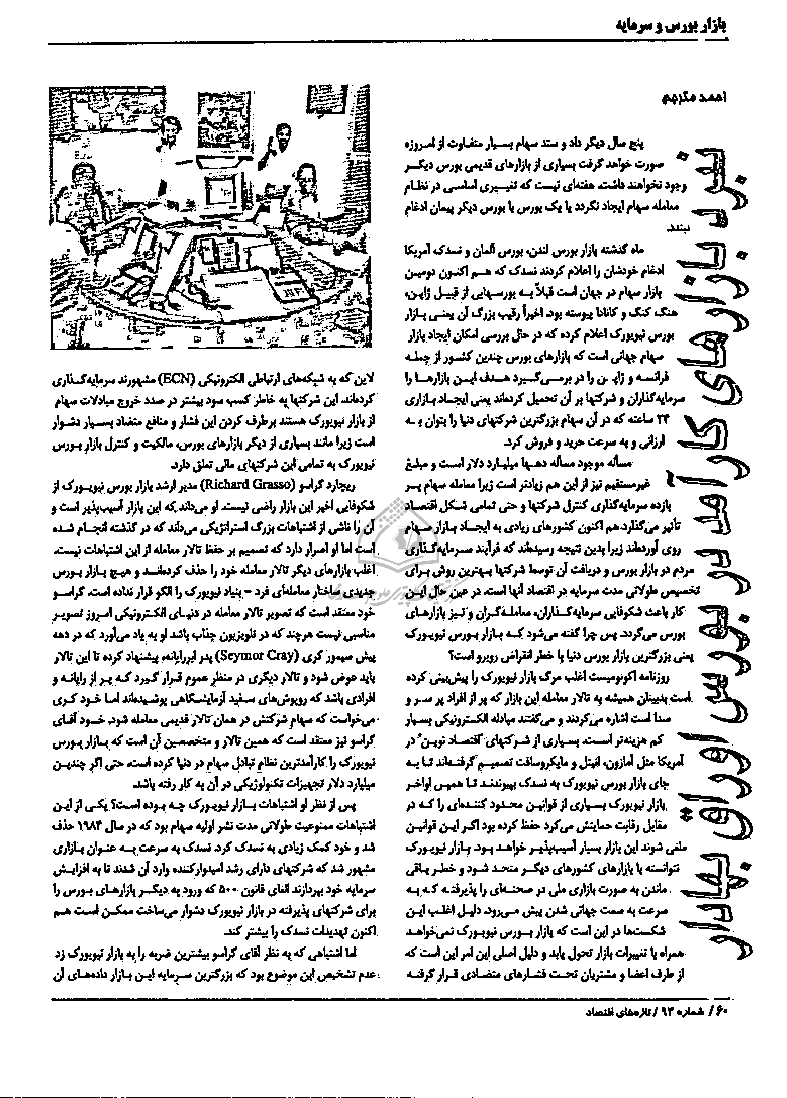 بازار بورس و سرمایه
نبرد بازارهای کارآمد در بورس اوراق بهادار
پنج سال دیگر داد و ستد سهام بسیار متفاوت از امروزه
صورت خواهد گرفت بسیاری از بازارهای قدیمی بورس دیگر
وجود نخواهند داشت. هفته‌ای نیست که تغییری اساسی در نظام
معامله سهام ایجاد نگردد یا یک بورس با بورس دیگر پیمان ادغام
نبندد.
ماه گذشته بازار بورس لندن، بورس آلمان و نسدک آمریکا
ادغام خودشان را اعلام کردند نسدک که هم اکنون دومین
بازار سهام در جهان است قبلاً به بورسهایی از قبیل ژاپن،
هنگ کنگ و کانادا پیوسته بود. اخیراً رقیب بزرگ آن یعنی بازار
بورس نیویورک اعلام کرده که در حال بررسی امکان ایجاد بازار
سهام جهانی است که بازارهای بورس چندین کشور از جمله
فرانسه و ژاپن را در برمی‌گیرد هدف این بازارها را
سرمایه‌گذاران و شرکتها بر آن تحمیل کرده‌اند یعنی ایجاد بازاری
۲۴ ساعته که در آن سهام بزرگترین شرکتهای دنیا را بتوان به
ارزانی و به سرعت خرید و فروش کرد.
مسأله موجود مسأله دهها میلیارد دلار است و مبلغ
غیرمستقیم نیز از این هم زیادتر است زیرا معامله سهام بر
بازده سرمایه‌گذاری کنترل شرکتها و حتی تمامی شکل اقتصاد
تأثیر می‌گذارد. هم اکنون کشورهای زیادی به ایجاد بازار سهام
روی آورده‌اند زیرا بدین نتیجه رسیده‌اند که فرآیند سرمایه‌گذاری
مردم در بازار بورس و دریافت آن توسط شرکتها بهترین روش برای
تخصیص طولانی مدت سرمایه در اقتصاد آنها است. در عین حال این
کار باعث شکوفایی سرمایه‌گذاران، معامله‌گران و نیز بازارهای
بورس می‌گردد. پس چرا گفته می‌شود که بازار بورس نیویورک
یعنی بزرگترین بازار بورس دنیا با خطر انقراض روبرو است؟
روزنامه اکونومیست اغلب مرگ بازار نیویورک را پیش‌بینی کرده
است بدبینان همیشه به تالار معامله این بازار که پر از افراد پر سر و
صدا است اشاره می‌کردند و می‌گفتند مبادله الکترونیکی بسیار
کم هزینه‌تر است. بسیاری از شرکتهای "اقتصاد نوین" در
آمریکا مثل آمازون، اینتل و مایکروسافت تصمیم گرفته‌اند تا به
جای بازار بورس نیویورک به نسدک بپیوندند تا همین اواخر
بازار نیویورک بسیاری از قوانین محدود کننده‌ای را که در
مقابل رقابت حمایتش می‌کرد حفظ کرده بود اگر این قوانین
ملغی شوند این بازار بسیار آسیب‌پذیر خواهد بود. بازار نیویورک
نتوانسته با بازارهای کشورهای دیگر متحد شود و خطر باقی
ماندن به صورت بازاری ملی در صحنه‌ای را پذیرفته که به
سرعت به سمت جهانی شدن پیش می‌رود. دلیل اغلب این
شکست‌ها در این است که بازار بورس نیویورک نمی‌خواهد
همراه با تغییرات بازار تحول یابد و دلیل اصلی این امر این است که
از طرف اعضا و مشتریان تحت فشارهای متضادی قرار گرفته
لاین که به شبکه‌های ارتباطی الکترونیکی (ECN) مشهورند سرمایه‌گذاری
کرده‌اند. این شرکتها به خاطر کسب سود بیشتر در صدد خروج مبادلات سهام
از بازار نیویورک هستند برطرف کردن این فشار و منافع متضاد بسیار دشوار
است زیرا مانند بسیاری از دیگر بازارهای بورس، مالکیت و کنترل بازار بورس
نیویورک به تمامی این شرکتهای مالی تعلق دارد.
ریچارد گراسو (Richard Grasso) مدیر ارشد بازار بورس نیویورک از
شکوفایی اخیر این بازار راضی نیست. او می‌داند که این بازار آسیب‌پذیر است و
آن را ناشی از اشتباهات بزرگ استراتژیکی می‌داند که در گذشته انجام شده
است اما او اصرار دارد که تصمیم بر حفظ تالار معامله از این اشتباهات نیست.
اغلب بازارهای دیگر تالار معامله خود را حذف کرده‌اند و هیچ بازار بورس
جدیدی ساختار معامله‌ای فرد - بنیاد نیویورک را الگو قرار نداده است. گراسو
خود معتقد است که تصویر تالار معامله در دنیای الکترونیکی امروز تصویر
مناسبی نیست هرچند که در تلویزیون جذاب باشد او به یاد می‌آورد که در دهه
پیش سیمور کری (Seymor Cray) پدر ابررایانه، پیشنهاد کرده تا این تالار
باید عوض شود و تالار دیگری در منظر عموم قرار گیرد که پر از رایانه و
افرادی باشد که روپوش‌های سفید آزمایشگاهی پوشیده‌اند اما خود کری
می‌خواست که سهام شرکتش در همان تالار قدیمی معامله شود. خود آقای
گراسو نیز معتقد است که همین تالار و متخصصین آن است که بازار بورس
نیویورک را کارآمدترین نظام تبادل سهام در دنیا کرده است، حتی اگر چندین
میلیارد دلار تجهیزات تکنولوژیکی در آن به کار رفته باشد.
پس از نظر او اشتباهات بازار نیویورک چه بوده است؟ یکی از این
اشتباهات ممنوعیت طولانی مدت نشر اولیه سهام بود که در سال ۱۹۸۴ حذف
شد و خود کمک زیادی به نسدک کرد. نسدک به سرعت به عنوان بازاری
مشهور شد که شرکتهای دارای رشد امیدوارکننده وارد آن شدند تا به افزایش
سرمایه خود بپردازند الغای قانون ۵۰۰ که ورود به دیگر بازارهای بورس را
برای شرکتهای پذیرفته در بازار نیویورک دشوار می‌ساخت ممکن است هم
اکنون تهدیدات نسدک را بیشتر کند.
اما اشتباهی که به نظر آقای گراسو بیشترین ضربه را به بازار نیویورک زد
عدم تشخیص این موضوع بود که بزرگترین سرمایه این بازار داده‌های آن
۶۰ / شماره ۹۳ / تازه‌های اقتصاد